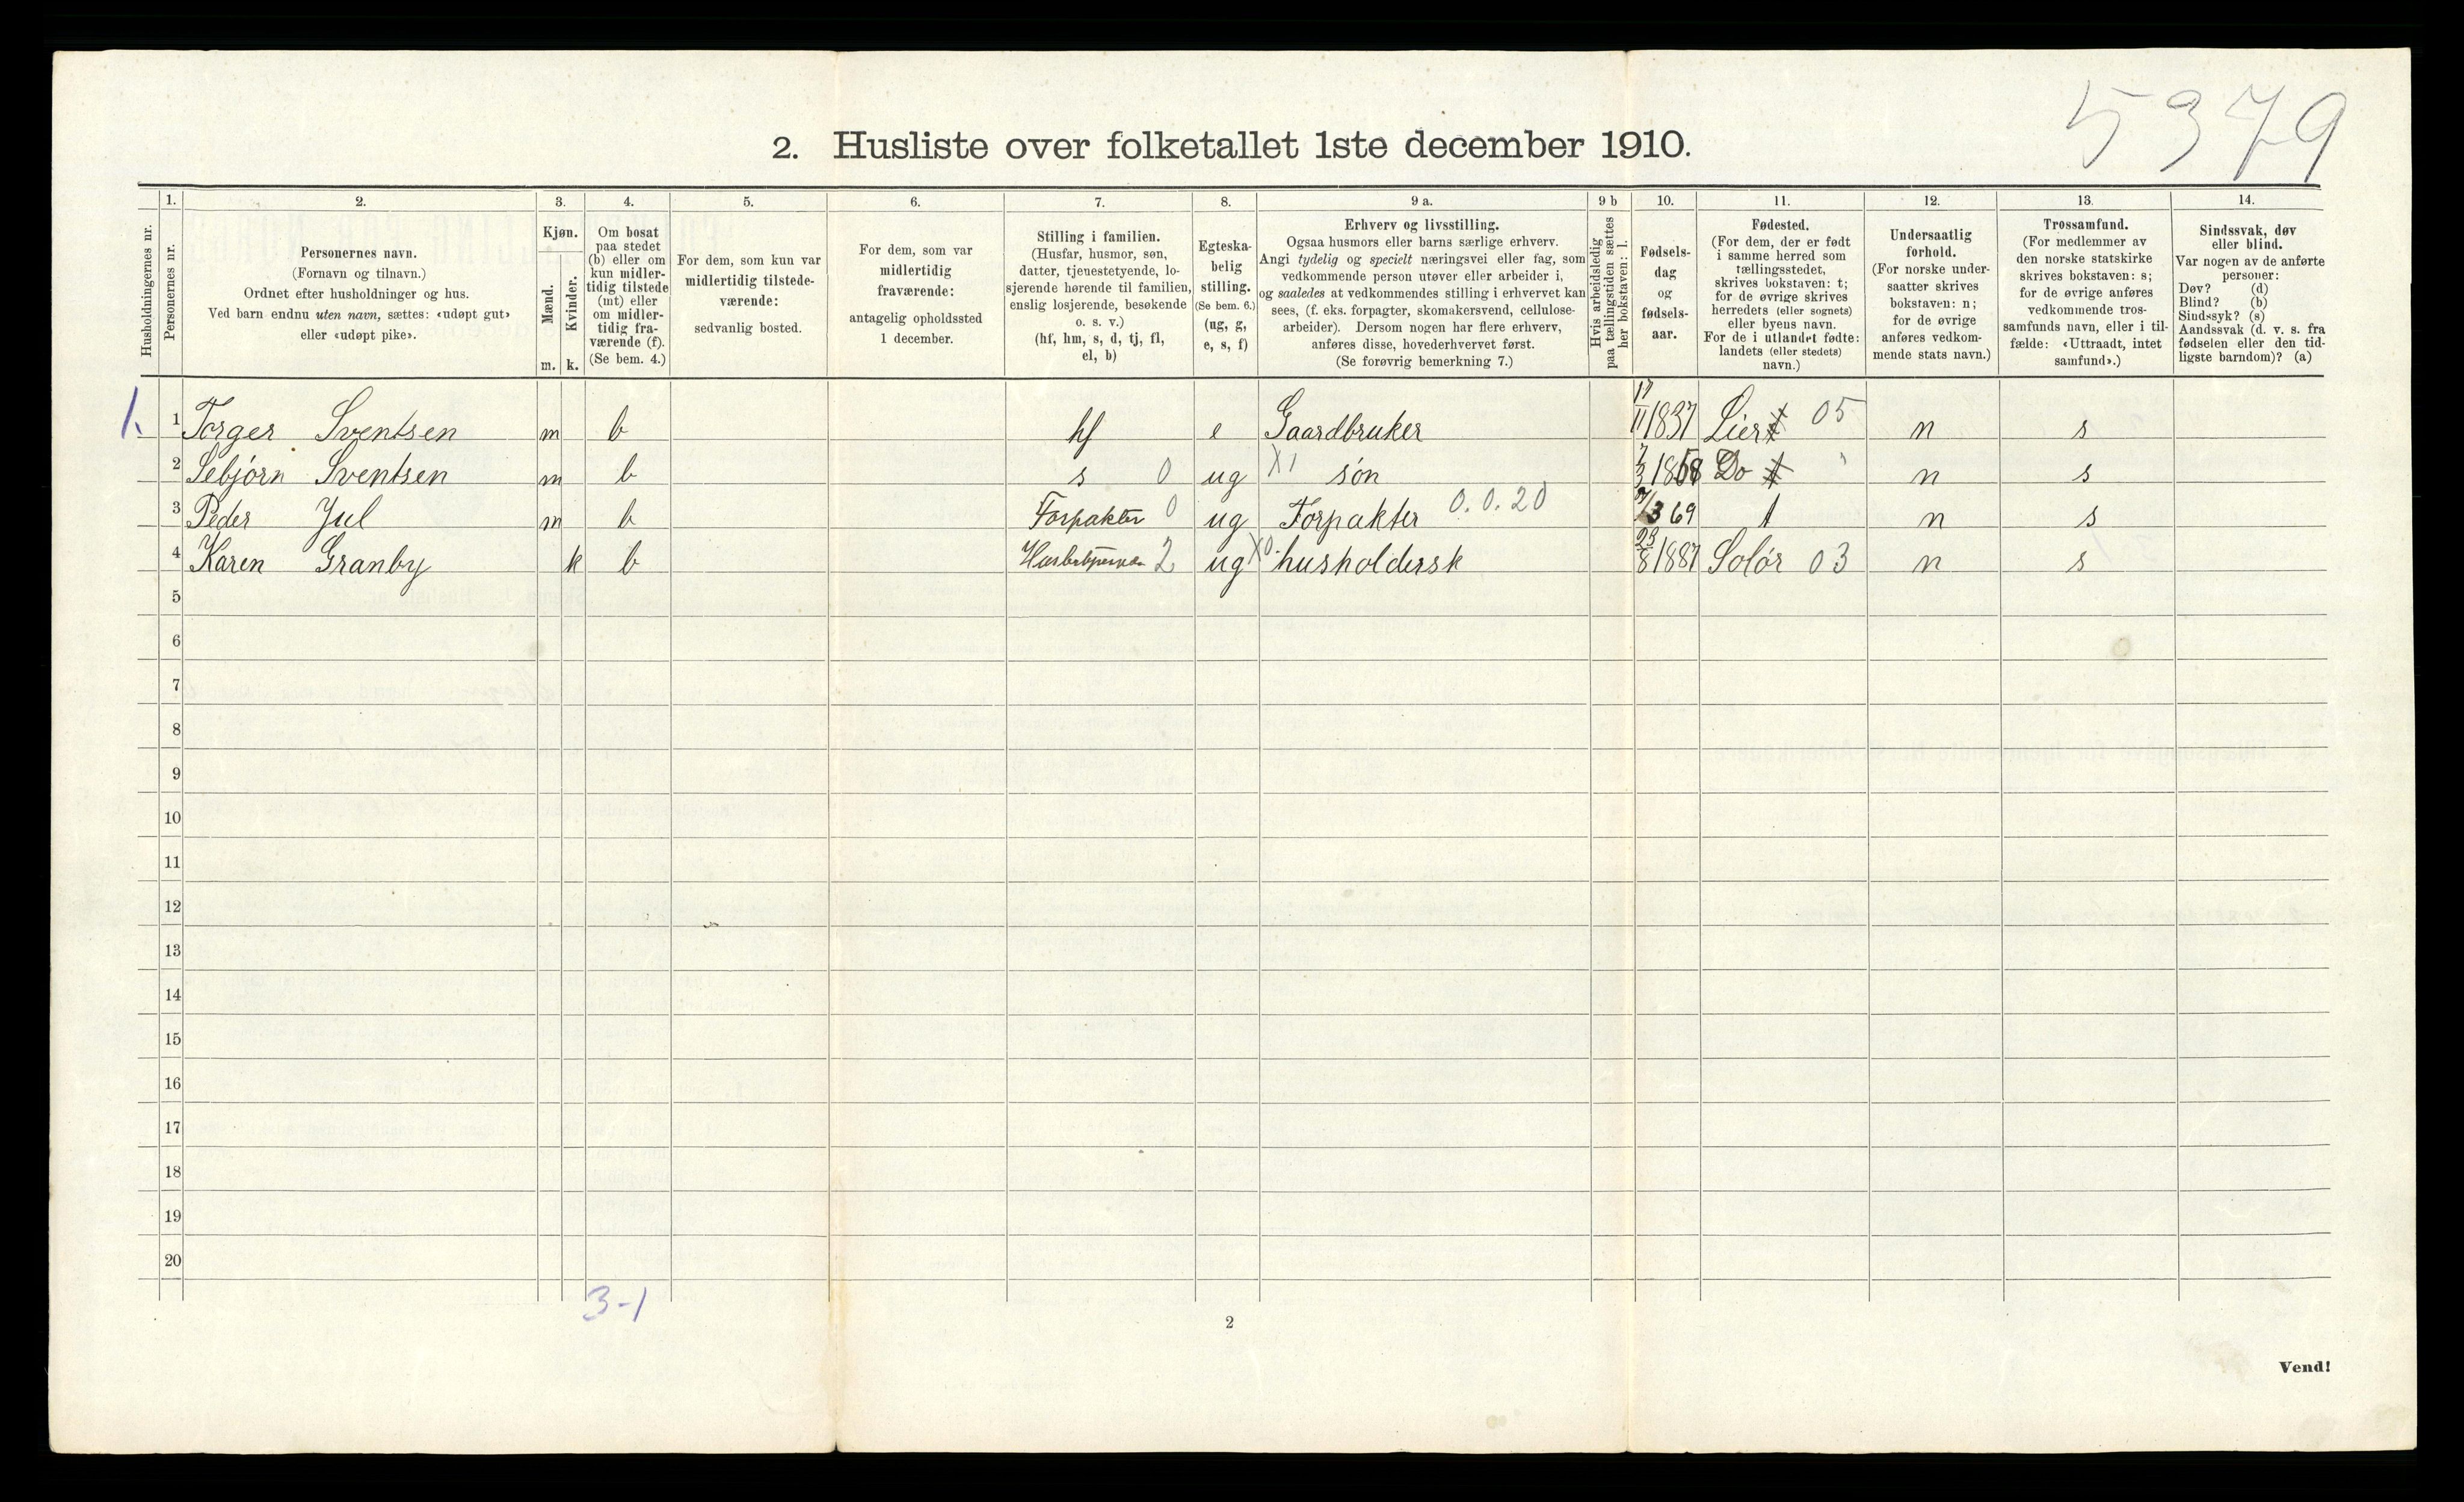 5379
2. Husliste over folketallet 1ste december 1910.
Husholdningernes nr.
1.
Personernes nr.
2.
Personernes navn.
(Fornavn og tilnavn.)
Ordnet efter husholdninger og hus.
Ved barn endnu uten navn, sættes: «udøpt gut»
eller «udøpt pike».
3.
Kjøn.
Mænd.
Kvinder.
m. k.
4.
Om bosat
paa stedet
(b) eller om
kun midler-
tidig tilstede
(mt) eller
om midler-
tidig fra-
værende (f).
(Se bem. 4.)
5.
For dem, som kun var
midlertidig tilstede-
værende:
sedvanlig bosted.
6.
For dem, som var
midlertidig
fraværende:
antagelig opholdssted
1 december.
7.
Stilling i familien.
(Husfar, husmor, søn,
datter, tjenestetyende, lo-
sjerende hørende til familien,
enslig losjerende, besøkende
o. s. v.)
(hf, hm, s, d, tj, fl,
el, b)
8.
Egteska-
belig
stilling.
(Se bem. 6.)
(ug, g,
e, s, f)
9 a.
Erhverv og livsstilling.
Ogsaa husmors eller barns særlige erhverv.
Angi tydelig og specielt næringsvei eller fag, som
vedkommende person utøver eller arbeider i,
og saaledes at vedkommendes stilling i erhvervet kan
sees, (f. eks. forpagter, skomakersvend, cellulose-
arbeider). Dersom nogen har flere erhverv,
anføres disse, hovederhvervet først.
(Se forøvrig bemerkning 7.)
9 b
Hvis arbeidsledig
paa tællingstiden sættes
her bokstaven: l.
10.
Fødsels-
dag
og
fødsels-
aar.
11.
Fødested.
(For dem, der er født
i samme herred som
tællingsstedet,
skrives bokstaven: t;
for de øvrige skrives
herredets (eller sognets)
eller byens navn.
For de i utlandet fødte:
landets (eller stedets)
navn.)
12.
Undersaatlig
forhold.
(For norske under-
saatter skrives
bokstaven: n;
for de øvrige
anføres vedkom-
mende stats navn.)
13.
Trossamfund.
(For medlemmer av
den norske statskirke
skrives bokstaven: s;
for de øvrige anføres
vedkommende tros-
samfunds navn, eller i til-
fælde: «Uttraadt, intet
samfund».)
14.
Sindssvak, døv
eller blind.
Var nogen av de anførte
personer:
Døv? (d)
Blind? (b)
Sindssyk? (s)
Aandssvak (d. v. s. fra
fødselen eller den tid-
ligste barndom)? (a)
1. 1 Torger Sventsen m b hf e Gaardbruker 17/11 1837 Lier t 05 n s
2 Sebjörn Sventsen m b s 0 ug X1 søn 7/3 1868 Do t " n s
3 Peder Jul m b Forpakter 0 ug Forpakter 0.0.20 /3 69 t n s
4 Karen Granby k b 2 ug X0. husholdersk 23/8 1887 Solör 03 n s
5
6
7
8
9
10
11
12
13
14
15
16
17
18
19
20
3-1
2
Vend!